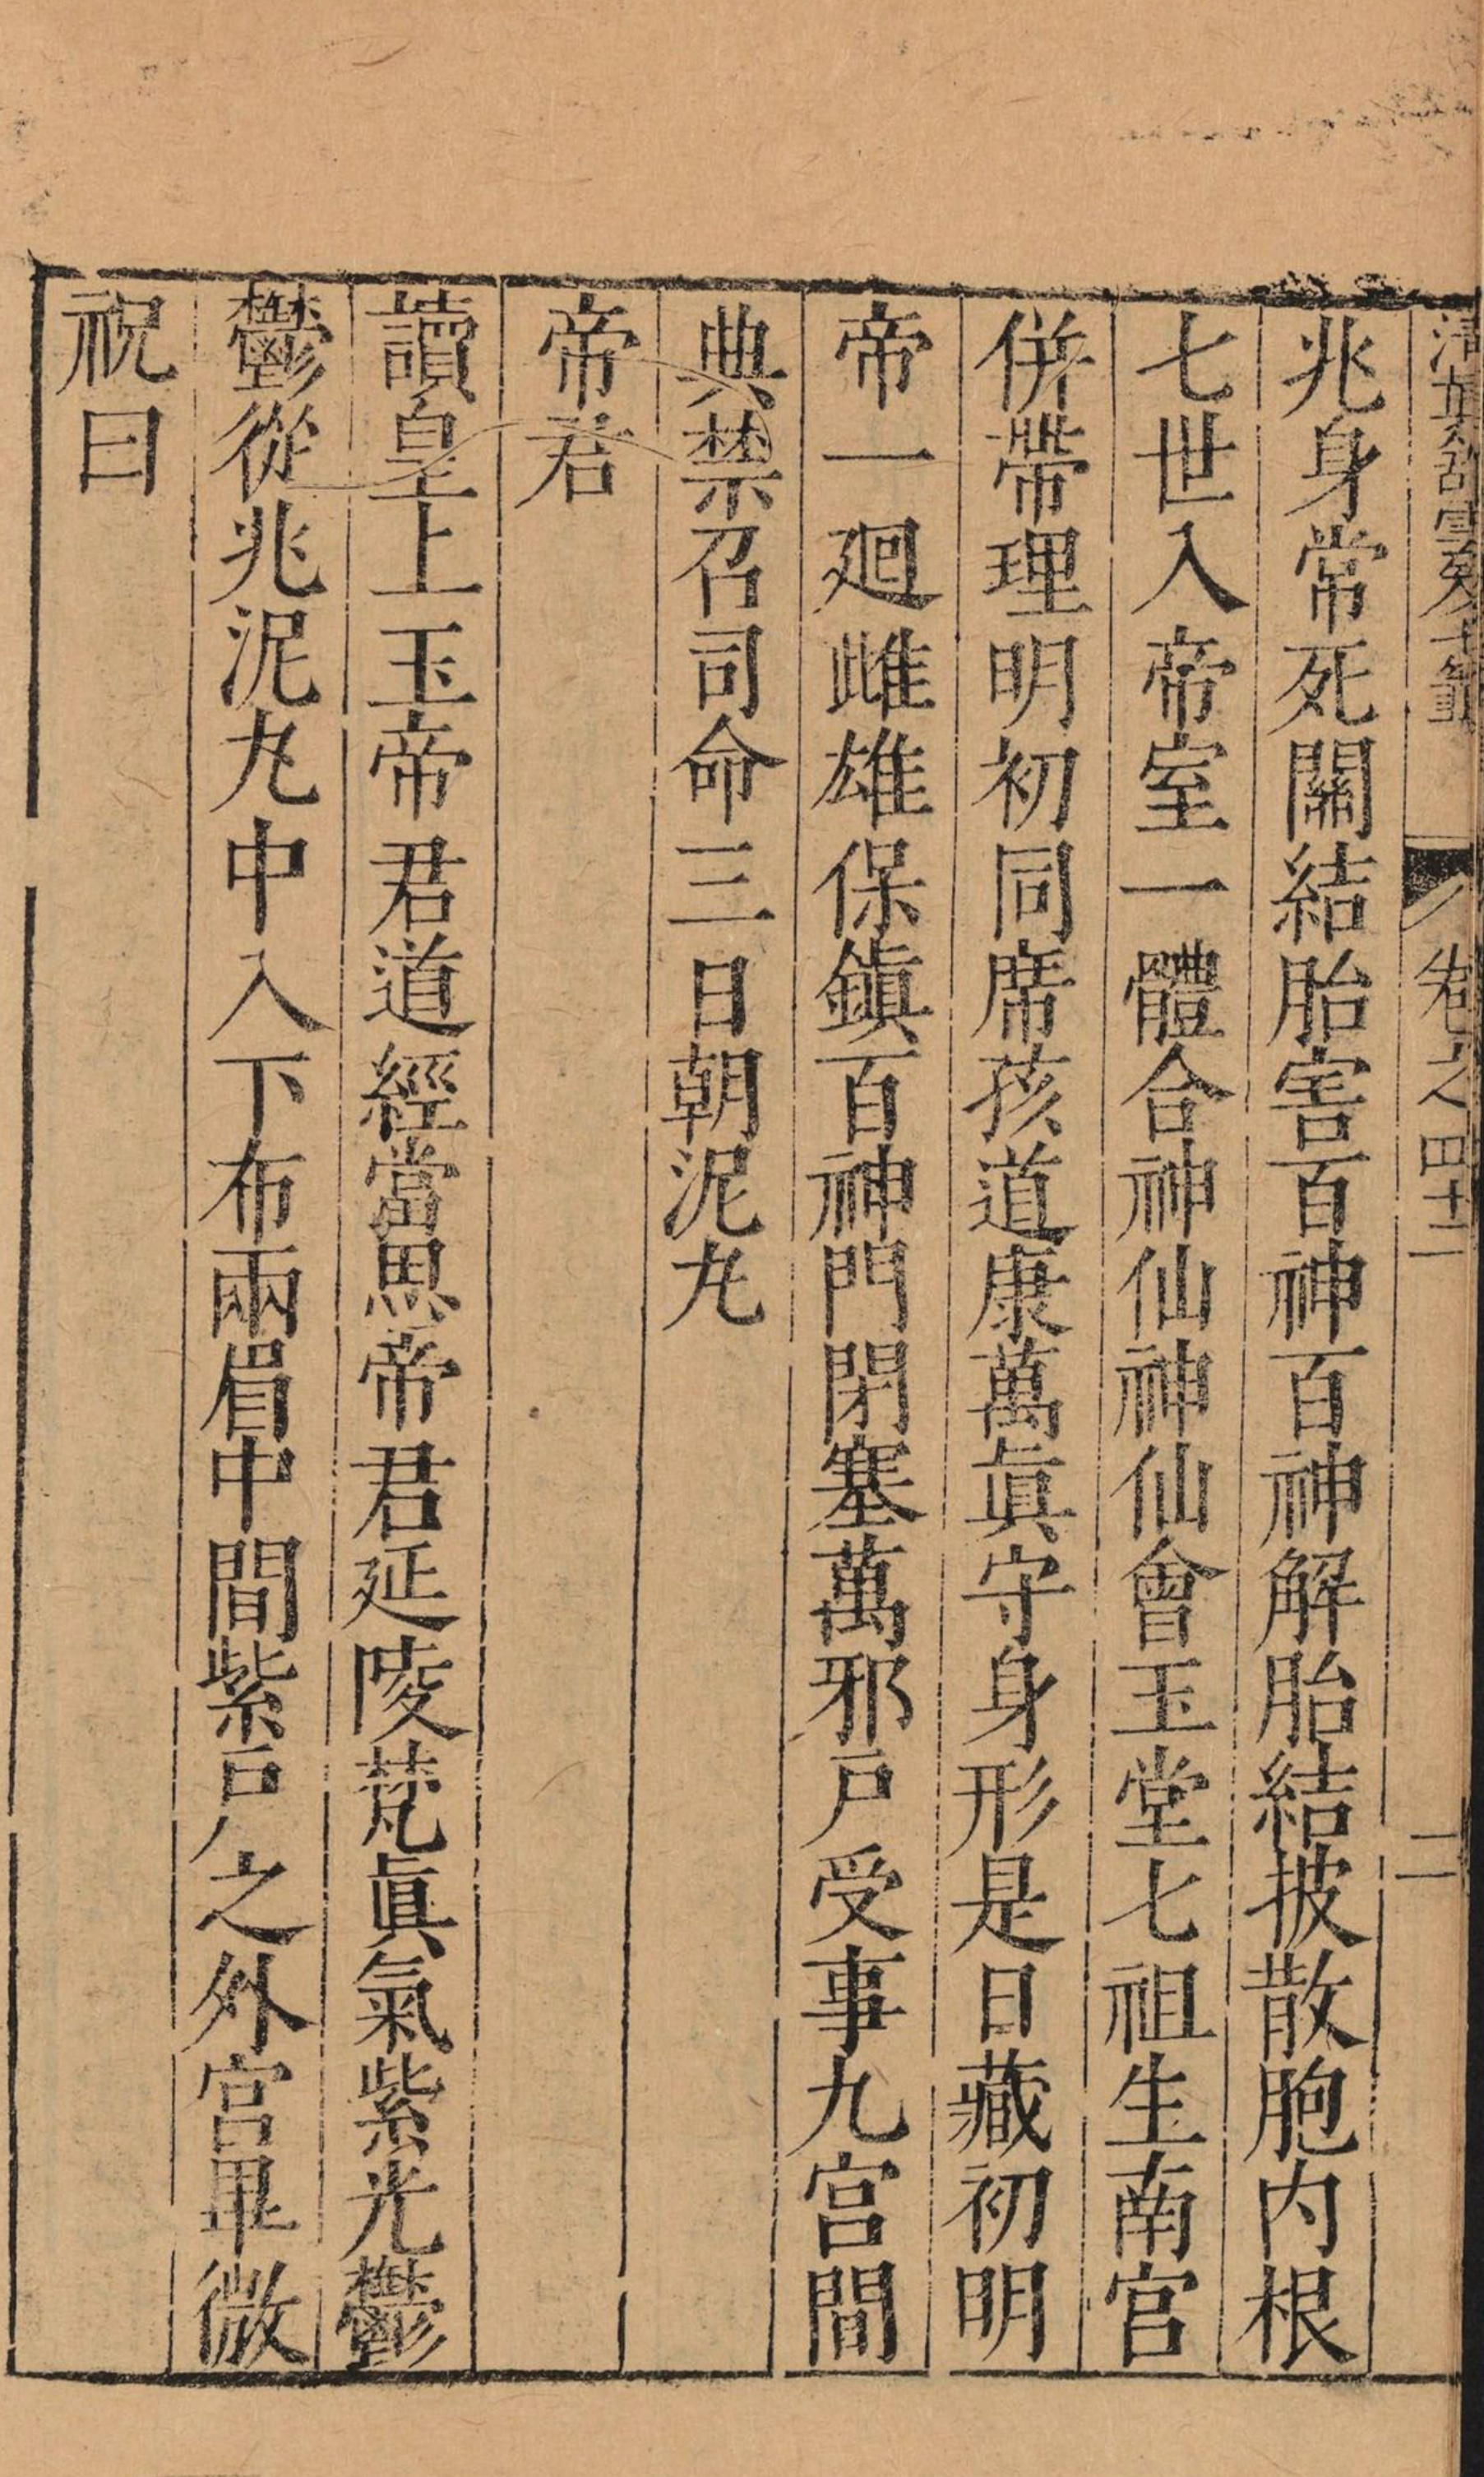 清眞舘雲笈七籤 卷之四十二 二
兆身常死關結胎害百神百神解胎結披散胞内根
七世入帝室一體合神仙神仙會玉堂七祖生南宮
併帶理明初同席孩道康萬眞守身形是日藏初明
帝一廻雌雄保鎭百神門閉塞萬邪戸受事九宮間
典禁召司命三日朝泥丸
帝君
讀皇上玉帝君道經當思帝君延陵梵眞氣紫光鬱
鬱從兆泥丸中入下布兩眉中間紫戸之外宮畢微
祝曰